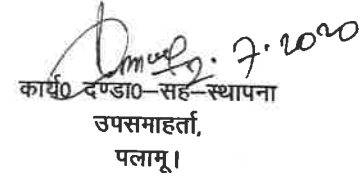 7.2020
कार्य0 दण्डा0–सह–स्थापना
उपसमाहर्ता,
पलामू।